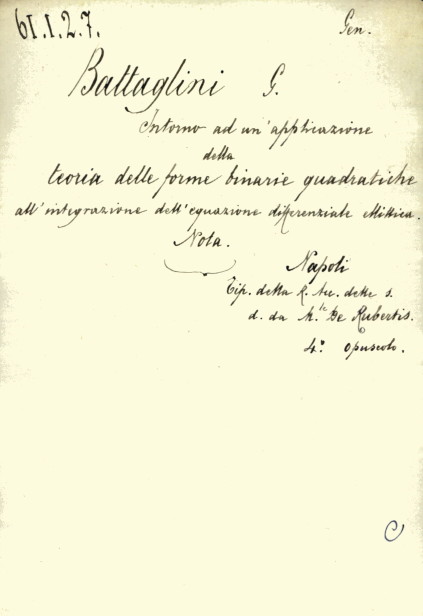 61.1.2.7.
Gen.
Battaglini G.
Intorno ad un'applicazione
della
teoria delle forme binarie quadratiche
all'integrazione dell'equazione differenziale ellittica.
Nota.
Napoli
Tip. della R. Ac. delle s.
d. da M.le De Rubertis.
4.° opuscolo.
C